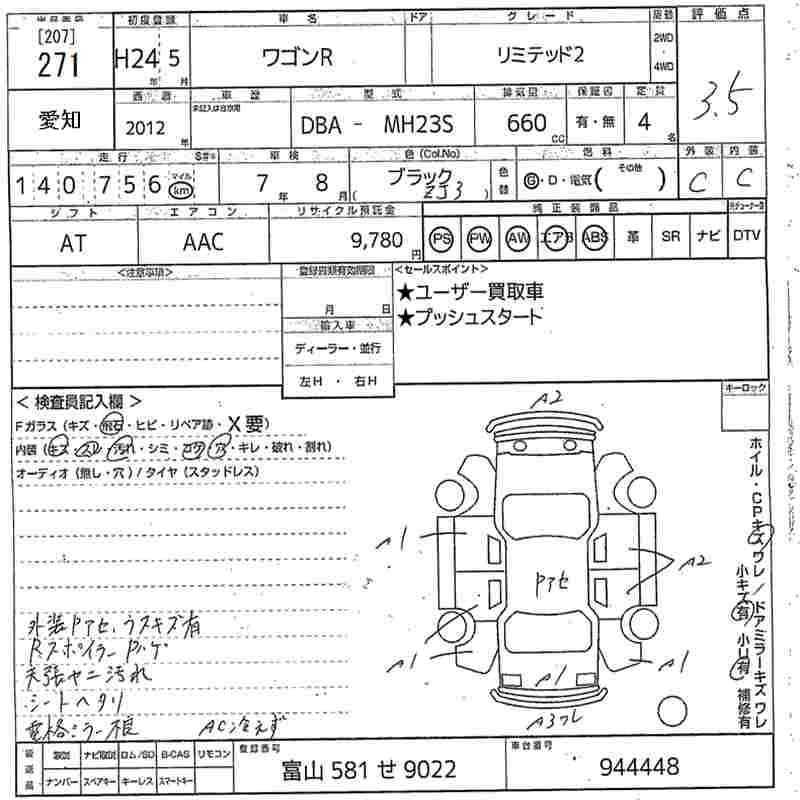 [207] 初度登録 車名 ドア グレード 駆動 評価点
271 H24年 5月 ワゴンR リミテッド2 2WD・4WD 3.5
愛知 西暦 車歴 型式 排気量 保証書 定員
未記入は自家用
2012年 DBA - MH23S 660cc 有・無 4名
走行 車検 色(Col.No) 色替 燃料 外装 内装
140756 マイル km 7年 8月 ブラック (ZJ3) G・D・電気(その他) C C
シフト エアコン リサイクル預託金 純正装備品
AT AAC 9,780円 PS PW AW エアB ABS 革 SR ナビ DTV
<注意事項> 登録書類有効期限 <セールスポイント>
月 日 ★ユーザー買取車
輸入車 ★プッシュスタート
ディーラー・並行
左H ・ 右H
キーロック
< 検査員記入欄 >
Fガラス (キズ・飛石・ヒビ・リペア跡・X要)
内装 (キズ・スレ・汚れ・シミ・コゲ・穴・キレ・破れ・割れ)
オーディオ (無し・穴) / タイヤ (スタッドレス)
A2
A1
A2
Pアセ
A1
A1
A1
A3ワレ
ホイル・CPキズワレ/ドアミラーキズワレ
小キズ有 小U有 補修有
外装Pアセ、ウスキズ有
Rスポイラー Pハゲ
天張ヤニ汚れ
シートヘタリ
電格ミラー不良 AC冷えず
後送品 取説 ナビ取説 ロム/SD B-CAS リモコン 登録番号 車台番号
ナンバー スペアキー キーレス スマートキー 富山 581 せ 9022 944448